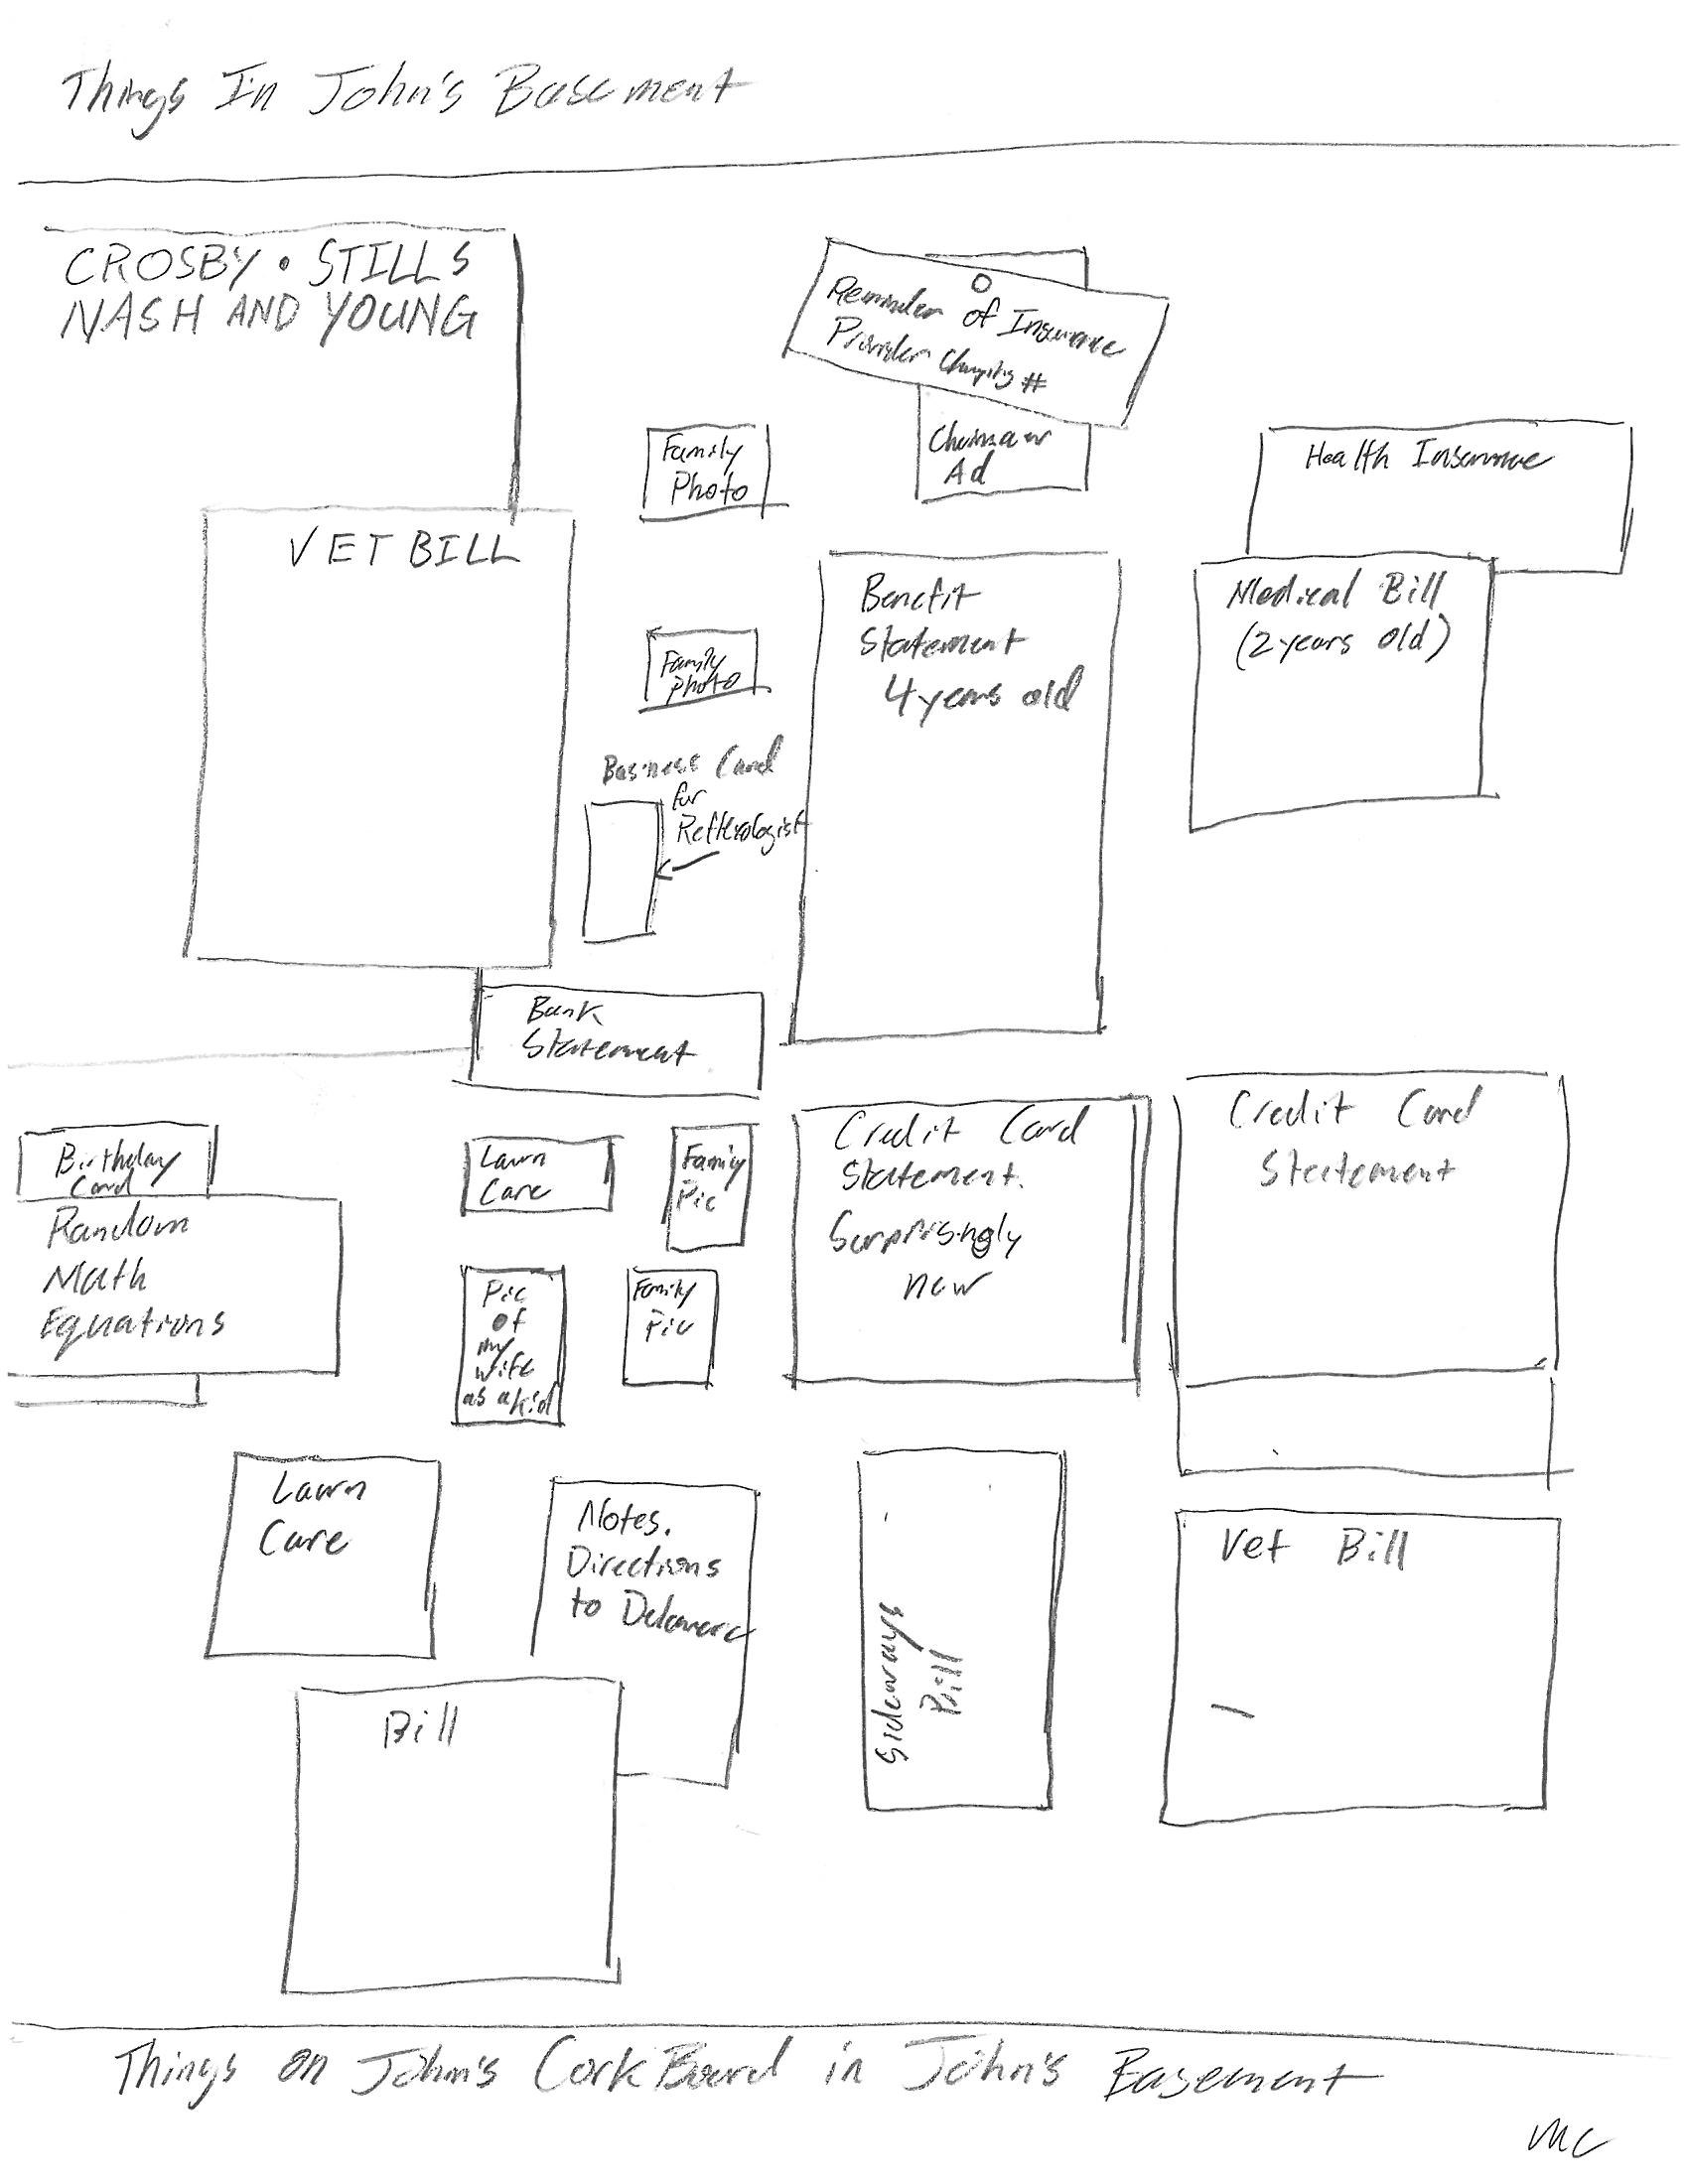 Things In John's Basement
CROSBY • STILLS
NASH AND YOUNG
Reminder of Insurance
Provider Changing #
Chainsaw
Ad
Family
Photo
Health Insurance
VET BILL
Benefit
Statement
4 years old
Medical Bill
(2 years old)
Family
Photo
Business Card
for
Reflexologist
Bank
Statement
Birthday
Card
Random
Math
Equations
Lawn
Care
Family
Pic
Credit Card
Statement.
Surprisingly
new
Credit Card
Statement
Pic
of
my
wife
as a kid
Family
Pic
Lawn
Care
Notes.
Directions
to Delaware
Sideways
Bill
Vet Bill
Bill
Things on John's Cork Board in John's Basement
MC